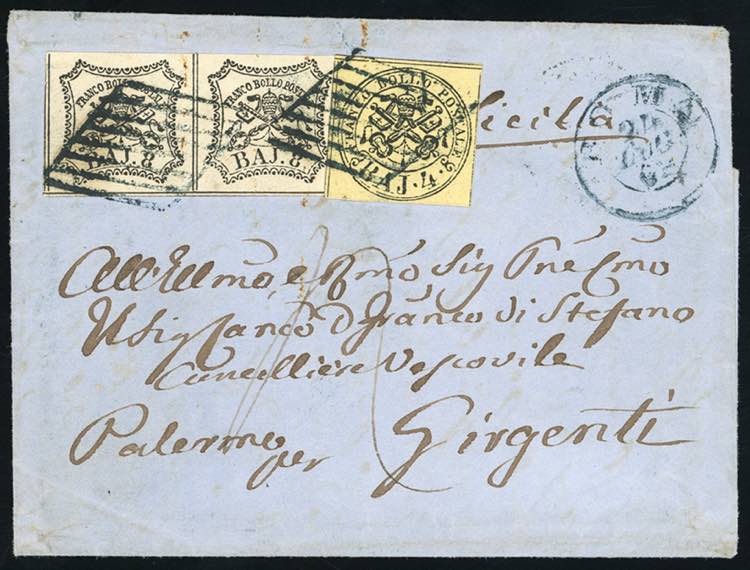 FRANCO BOLLO POSTALE
BAJ. 8
FRANCO BOLLO POSTALE
BAJ. 8
BOLLO POSTALE
BAJ. 4
Sicilia
ROMA
24
62
All'Illmo e Rmo Sig Pne Cmo
Il Sig Canco D Franco Di Stefano
Cancelliere Vescovile
Palermo per Girgenti